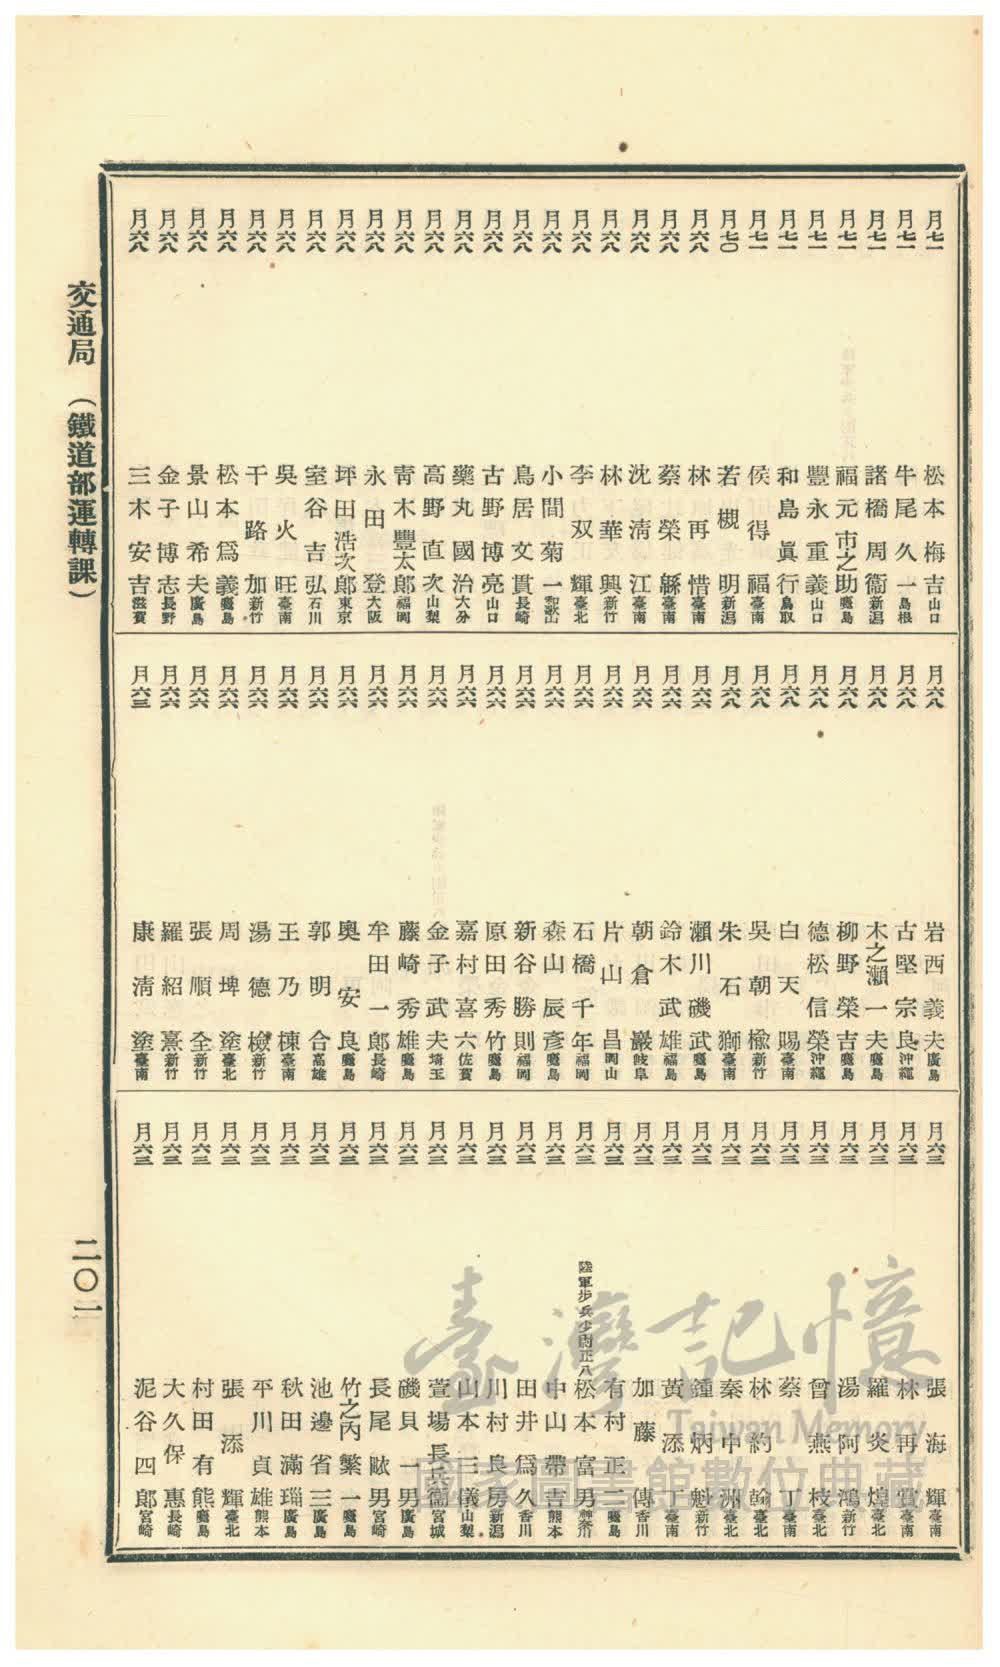 月七一 松本梅吉 山口
月七一 牛尾久一 島根
月七一 諸橋周衞 新潟
月七一 福元市之助 鹿兒島
月七一 豐永重義 山口
月七一 和島眞行 鳥取
月七一 侯得福 臺南
月七〇 若槻明 新潟
月六八 林再惜 臺南
月六八 蔡榮縣 臺南
月六八 沈淸江 臺南
月六八 林華興 新竹
月六八 李双輝 臺北
月六八 小間菊一 和歌山
月六八 鳥居文貫 長崎
月六八 古野博亮 山口
月六八 藥丸國治 大分
月六八 高野直次 山梨
月六八 靑木豐太郞 福岡
月六八 永田登 大阪
月六八 坪田浩次郞 東京
月六八 室谷吉弘 石川
月六八 吳火旺 臺南
月六八 干路加 新竹
月六八 松本爲義 鹿兒島
月六八 景山希夫 廣島
月六八 金子博志 長野
月六八 三木安吉 滋賀
月六八 岩西義夫 廣島
月六八 古堅宗良 沖繩
月六八 木之瀨一夫 鹿兒島
月六八 柳野榮吉 鹿兒島
月六八 德松信榮 沖繩
月六八 白天賜 臺南
月六八 吳朝楡 新竹
月六八 朱石獅 臺南
月六六 瀨川磯武 鹿兒島
月六六 鈴木武雄 福島
月六六 朝倉巖 岐阜
月六六 片山昌 岡山
月六六 石橋千年 福岡
月六六 森山辰彥 鹿兒島
月六六 新谷勝則 福岡
月六六 原田秀竹 鹿兒島
月六六 嘉村喜六 佐賀
月六六 金子武夫 埼玉
月六六 藤崎秀雄 鹿兒島
月六六 牟田一郞 長崎
月六六 奧安良 鹿兒島
月六六 郭明合 高雄
月六六 王乃棟 臺南
月六六 湯德檢 新竹
月六六 周埤塗 臺北
月六六 張順全 新竹
月六六 羅紹熹 新竹
月六三 康淸塗 臺南
月六三 張海輝 臺南
月六三 林再賓 臺南
月六三 羅炎煌 臺北
月六三 湯阿鴻 新竹
月六三 曾燕枝 臺北
月六三 蔡丁 臺南
月六三 林約翰 臺北
月六三 秦申洲 臺北
月六三 鍾炳魁 新竹
月六三 黃添丁 臺南
月六三 加藤傳 香川
月六三 有村正二 鹿兒島
月六三 陸軍步兵少尉正八 松本富男 神奈川
月六三 中山帶吉 熊本
月六三 田井爲久 香川
月六三 川村良房 新潟
月六三 山本三儀 山梨
月六三 萱場長兵衞 宮城
月六三 磯貝一男 廣島
月六三 長尾畩男 宮崎
月六三 竹之內繁一 鹿兒島
月六三 池邊省三 廣島
月六三 秋田滿瑙 廣島
月六三 平川貞雄 熊本
月六三 張添輝 臺北
月六三 村田有熊 鹿兒島
月六三 大久保惠 長崎
月六三 泥谷四郞 宮崎
交通局 (鐵道部運轉課)
二〇一
臺灣記憶
Taiwan Memory
國家圖書館數位典藏